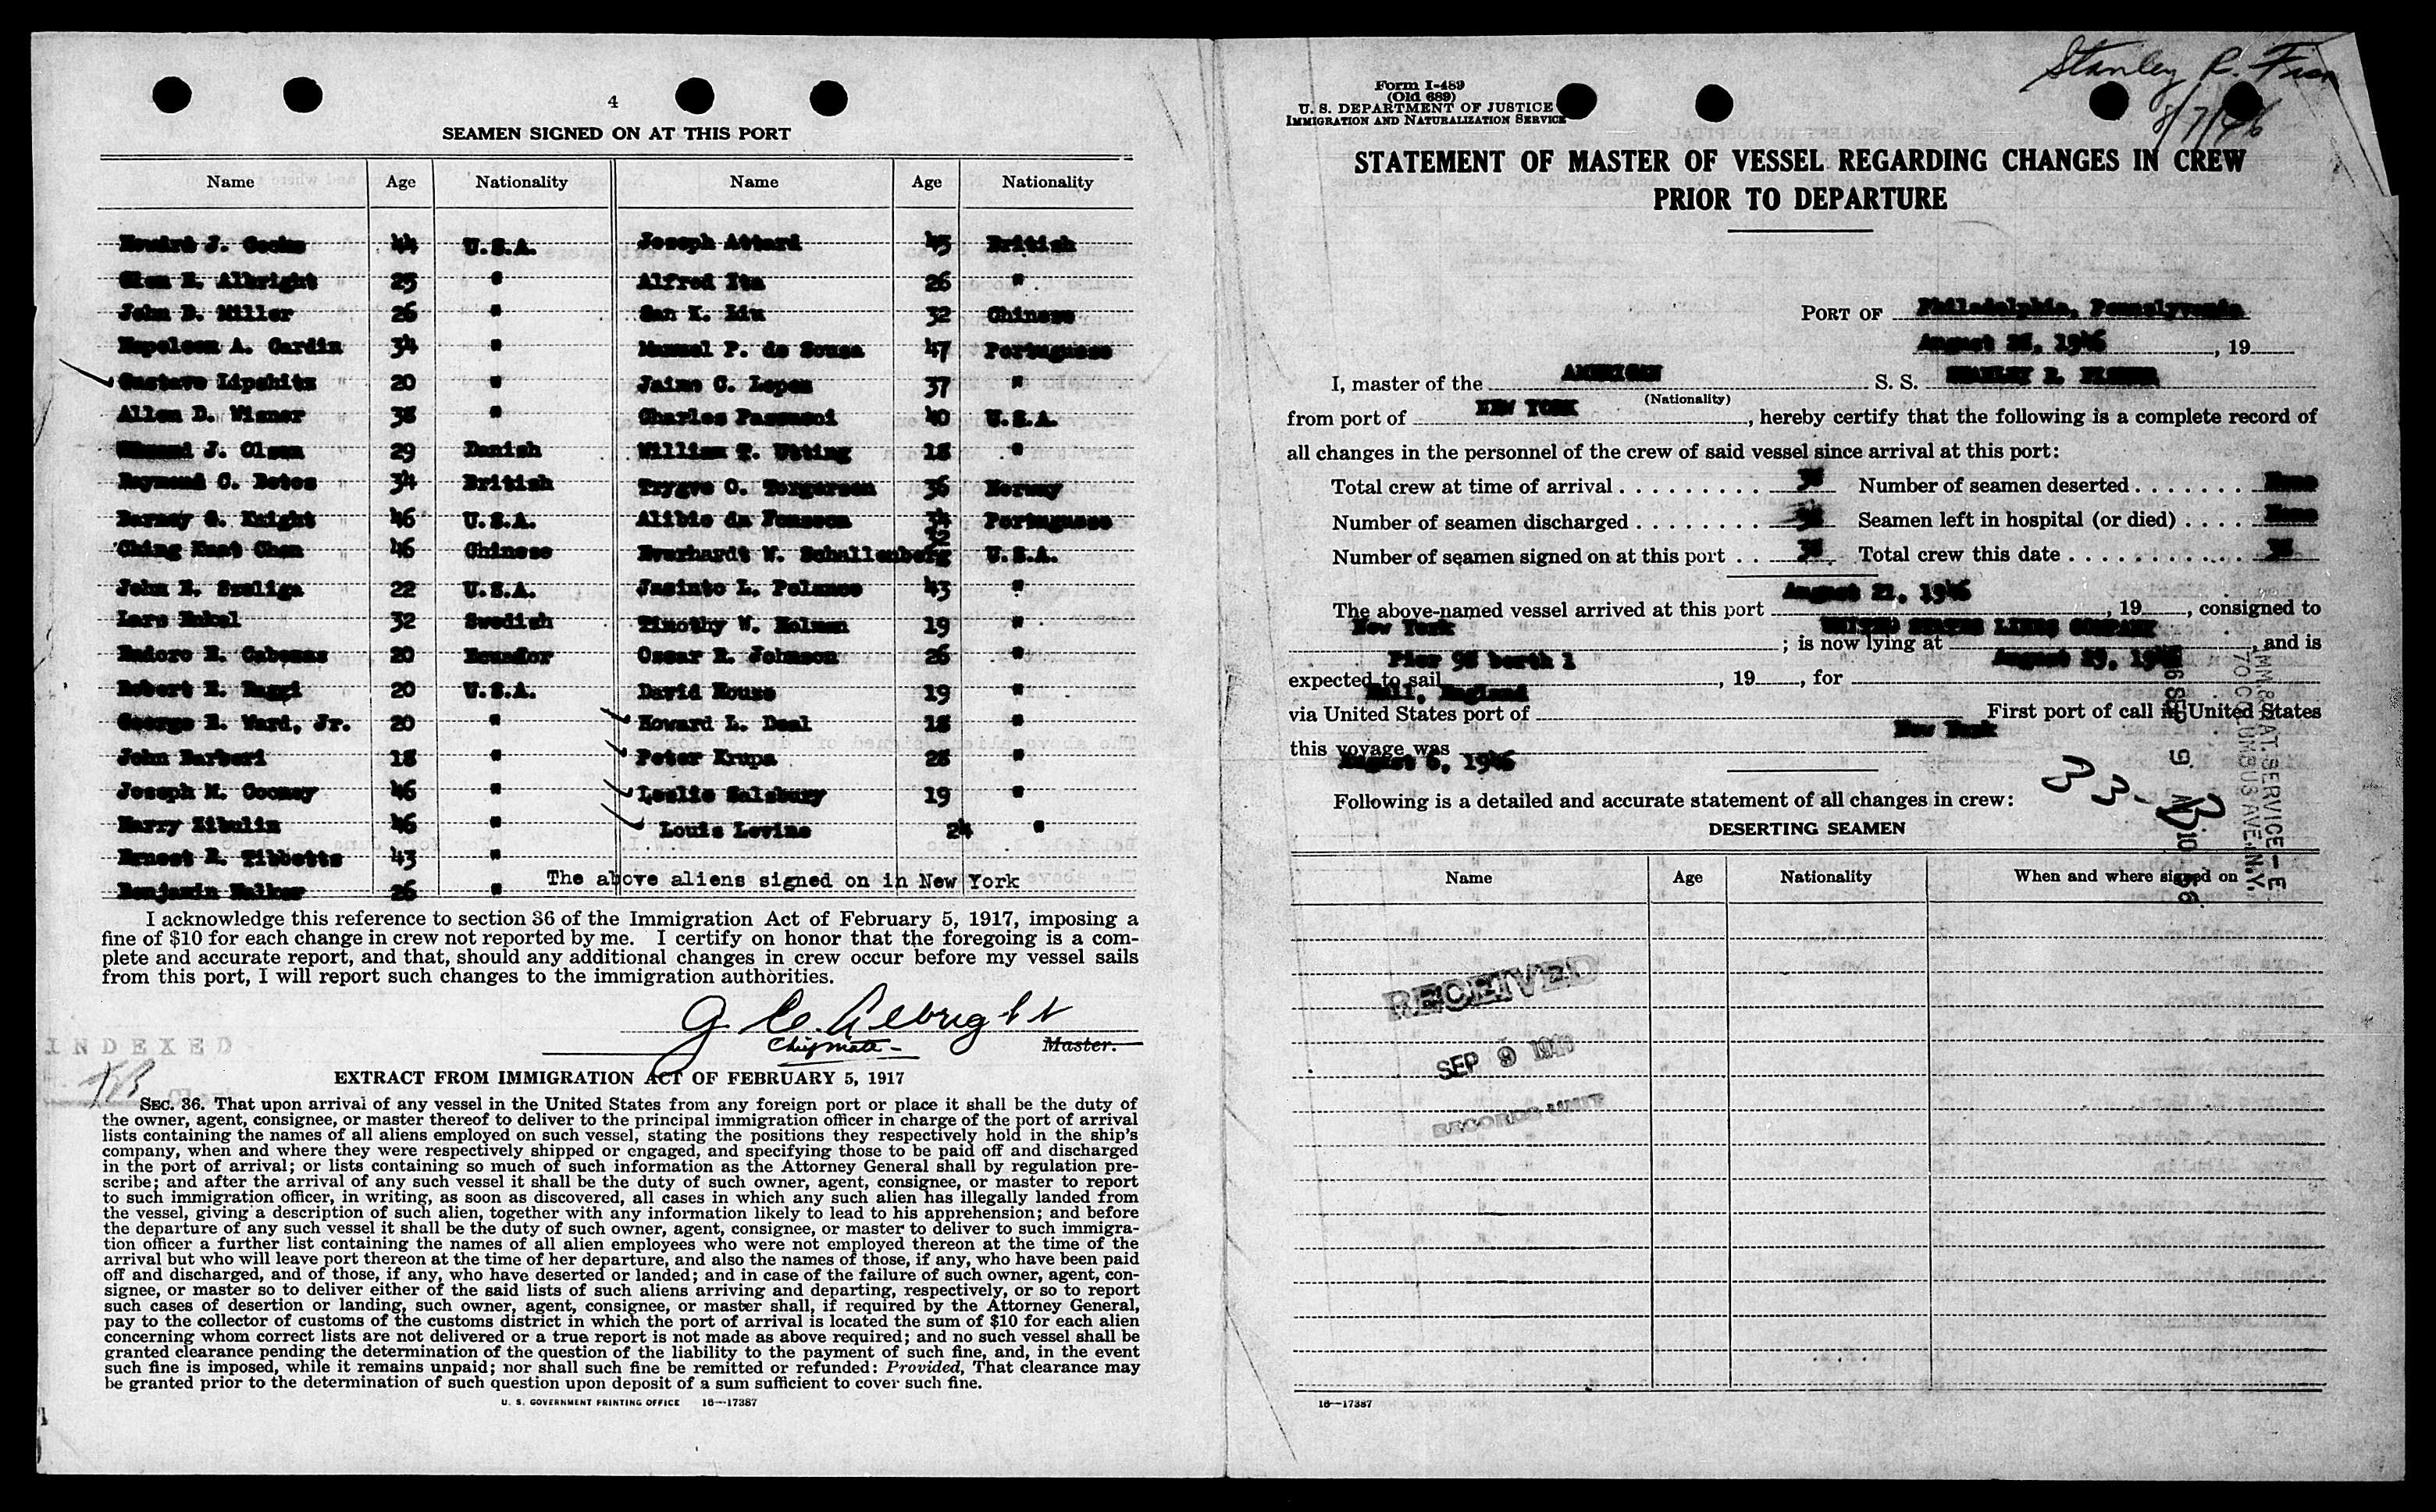 4
SEAMEN SIGNED ON AT THIS PORT
Name Age Nationality Name Age Nationality
Howard J. 44 U.S.A. Joseph Attard 45 British
Glen E. Albright 25 " Alfred 26 "
John D. Miller 26 " San K. Liu 32 Chinese
Napoleon A. Gardin 34 " Manuel P. de Sousa 47 Portuguese
Gustave Lipshitz 20 " Jaime C. Lopes 37 "
Allen D. Wisner 38 " Charles 40 U.S.A.
J. Olsen 29 Danish William T. Utting 18 "
Raymond C. 34 British Trygve O. Torgersen 36 Norway
Barney G. Knight 46 U.S.A. Alibio da Fonseca 34 Portuguese
Ching Chen 46 Chinese Everhardt W. Schallenberg 32 U.S.A.
John E. Szeliga 22 U.S.A. Jasinto L. Polanco 43 "
Lars 32 Swedish Timothy W. Holman 19 "
E. 20 Ecuador Oscar R. Johnson 26 "
Robert E. Raggi 20 U.S.A. David House 19 "
George E. Ward, Jr. 20 " Howard L. Deal 18 "
John Barberi 18 " Peter Krupa 28 "
Joseph M. Cooney 46 " Leslie Salsbury 19 "
Harry Zibulin 46 " Louis Levine 24 "
Ernest R. Tibbetts 43 "
Benjamin Walker 26 " The above aliens signed on in New York
I acknowledge this reference to section 36 of the Immigration Act of February 5, 1917, imposing a
fine of $10 for each change in crew not reported by me. I certify on honor that the foregoing is a com-
plete and accurate report, and that, should any additional changes in crew occur before my vessel sails
from this port, I will report such changes to the immigration authorities.
G. E. Albright
Chief mate - Master.
INDEXED
EXTRACT FROM IMMIGRATION ACT OF FEBRUARY 5, 1917
SEC. 36. That upon arrival of any vessel in the United States from any foreign port or place it shall be the duty of
the owner, agent, consignee, or master thereof to deliver to the principal immigration officer in charge of the port of arrival
lists containing the names of all aliens employed on such vessel, stating the positions they respectively hold in the ship's
company, when and where they were respectively shipped or engaged, and specifying those to be paid off and discharged
in the port of arrival; or lists containing so much of such information as the Attorney General shall by regulation pre-
scribe; and after the arrival of any such vessel it shall be the duty of such owner, agent, consignee, or master to report
to such immigration officer, in writing, as soon as discovered, all cases in which any such alien has illegally landed from
the vessel, giving a description of such alien, together with any information likely to lead to his apprehension; and before
the departure of any such vessel it shall be the duty of such owner, agent, consignee, or master to deliver to such immigra-
tion officer a further list containing the names of all alien employees who were not employed thereon at the time of the
arrival but who will leave port thereon at the time of her departure, and also the names of those, if any, who have been paid
off and discharged, and of those, if any, who have deserted or landed; and in case of the failure of such owner, agent, con-
signee, or master so to deliver either of the said lists of such aliens arriving and departing, respectively, or so to report
such cases of desertion or landing, such owner, agent, consignee, or master shall, if required by the Attorney General,
pay to the collector of customs of the customs district in which the port of arrival is located the sum of $10 for each alien
concerning whom correct lists are not delivered or a true report is not made as above required; and no such vessel shall be
granted clearance pending the determination of the question of the liability to the payment of such fine, and, in the event
such fine is imposed, while it remains unpaid; nor shall such fine be remitted or refunded: Provided, That clearance may
be granted prior to the determination of such question upon deposit of a sum sufficient to cover such fine.
U. S. GOVERNMENT PRINTING OFFICE 16—17387
Stanley R. Fish
8/7/46
Form I-489
(Old 689)
U. S. DEPARTMENT OF JUSTICE
IMMIGRATION AND NATURALIZATION SERVICE
STATEMENT OF MASTER OF VESSEL REGARDING CHANGES IN CREW
PRIOR TO DEPARTURE
PORT OF Philadelphia, Pennsylvania
August 28, 1946, 19
I, master of the AMERICAN S. S. STANLEY R. FISHER
(Nationality)
from port of NEW YORK, hereby certify that the following is a complete record of
all changes in the personnel of the crew of said vessel since arrival at this port:
Total crew at time of arrival 38 Number of seamen deserted None
Number of seamen discharged Seamen left in hospital (or died) None
Number of seamen signed on at this port 38 Total crew this date 38
August 21, 1946
The above-named vessel arrived at this port , 19 , consigned to
New York UNITED STATES LINES COMPANY
; is now lying at and is
Pier 98 berth 1 August 29, 1946
expected to sail , 19 , for
Hull, England
via United States port of First port of call in United States
New York
this voyage was
August 6, 1946
33-B
Following is a detailed and accurate statement of all changes in crew:
DESERTING SEAMEN
Name Age Nationality When and where signed on
IMM. & NAT. SERVICE—E
70 COLUMBUS AVE., N.Y.
RECEIVED
SEP 9 1946
RECORDS UNIT
16—17387